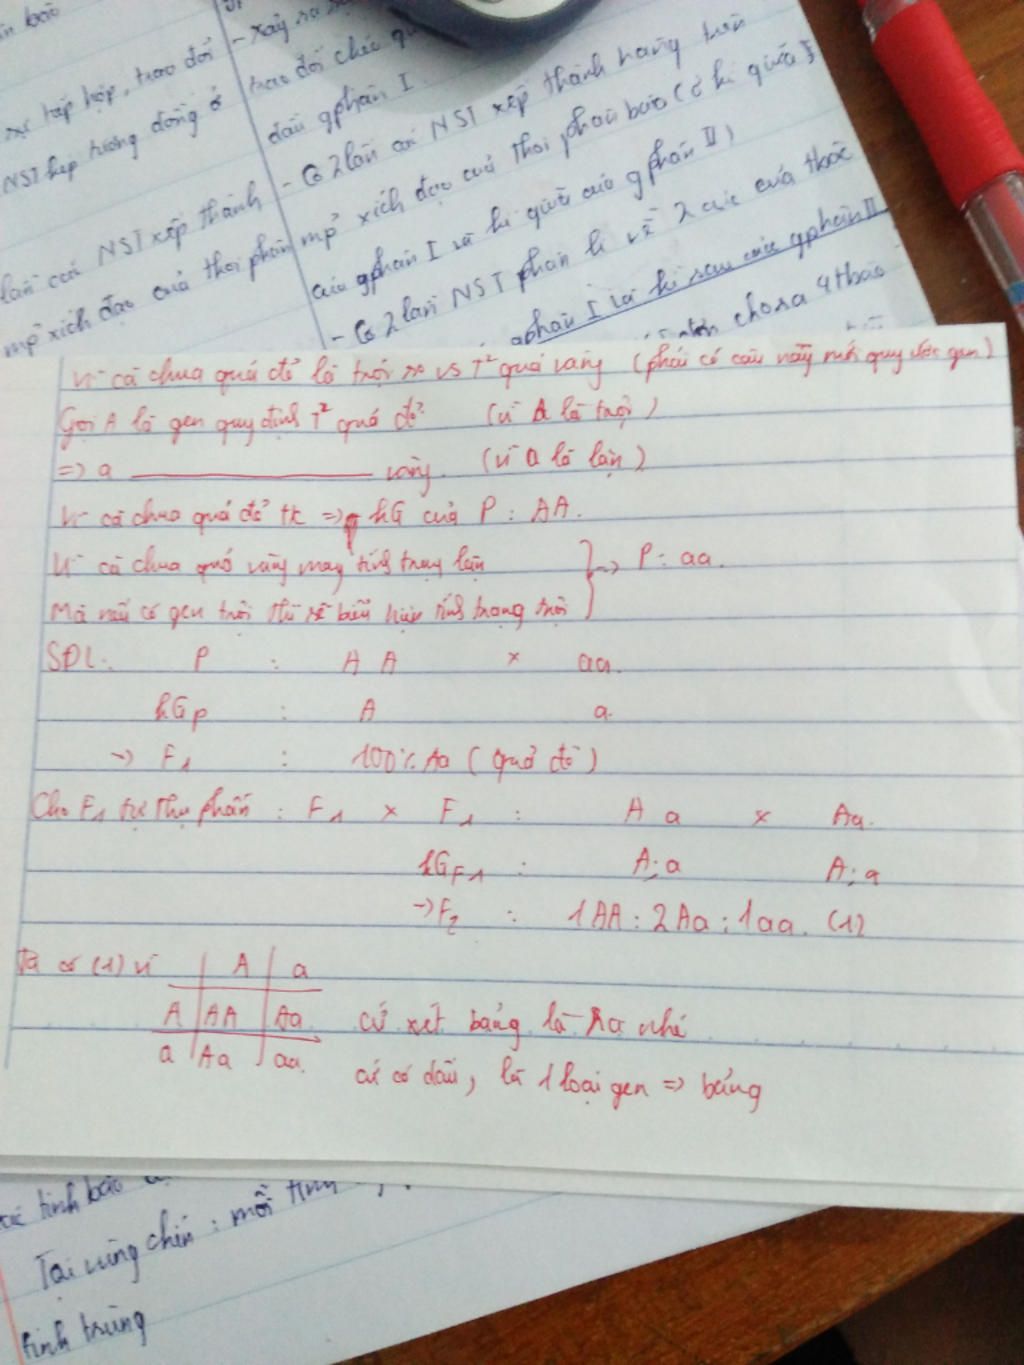 ền bào
sự tiếp hợp, trao đổi
NST kép tương đồng ở
lần các NST xếp thành
mp xích đạo của thoi phân
- Xảy ra sự
trao đổi chéo
đầu gphân I.
- Có 2 lần các NST xếp thành hàng trên
mp xích đạo của thoi phân bào (ở kì giữa
của gphân I và kì giữa của gphân II)
- Có 2 lần NST phân li về 2 cực của
gphân I và kì sau của gphân II
cho ra 4 tbào
Vì cà chua quả đỏ là trội so vs T² quả vàng (phải có câu này mới quy ước gen)
Gọi A là gen quy định T² quả đỏ (vì A là trội)
=> a ———— vàng. (vì a là lặn)
Vì cà chua quả đỏ tk => KG của P : AA.
Vì cà chua quả vàng mang tính trạng lặn
Mà nếu có gen trội thì sẽ biểu hiện tính trạng trội
-> P : aa.
SĐL: P : AA × aa.
KGp : A a.
-> F1 : 100% Aa (quả đỏ)
Cho F1 tự thụ phấn : F1 × F1 : Aa × Aa.
KGF1 : A;a A;a
-> F2 : 1AA : 2Aa : 1aa. (1)
Ta có (1) vì | A | a
A | AA | Aa cứ xét bảng là ra nhé
a | Aa | aa.
cứ có dấu ; là 1 loại gen => bảng
tinh bào
Tại vùng chín : mỗi tinh
tinh trùng